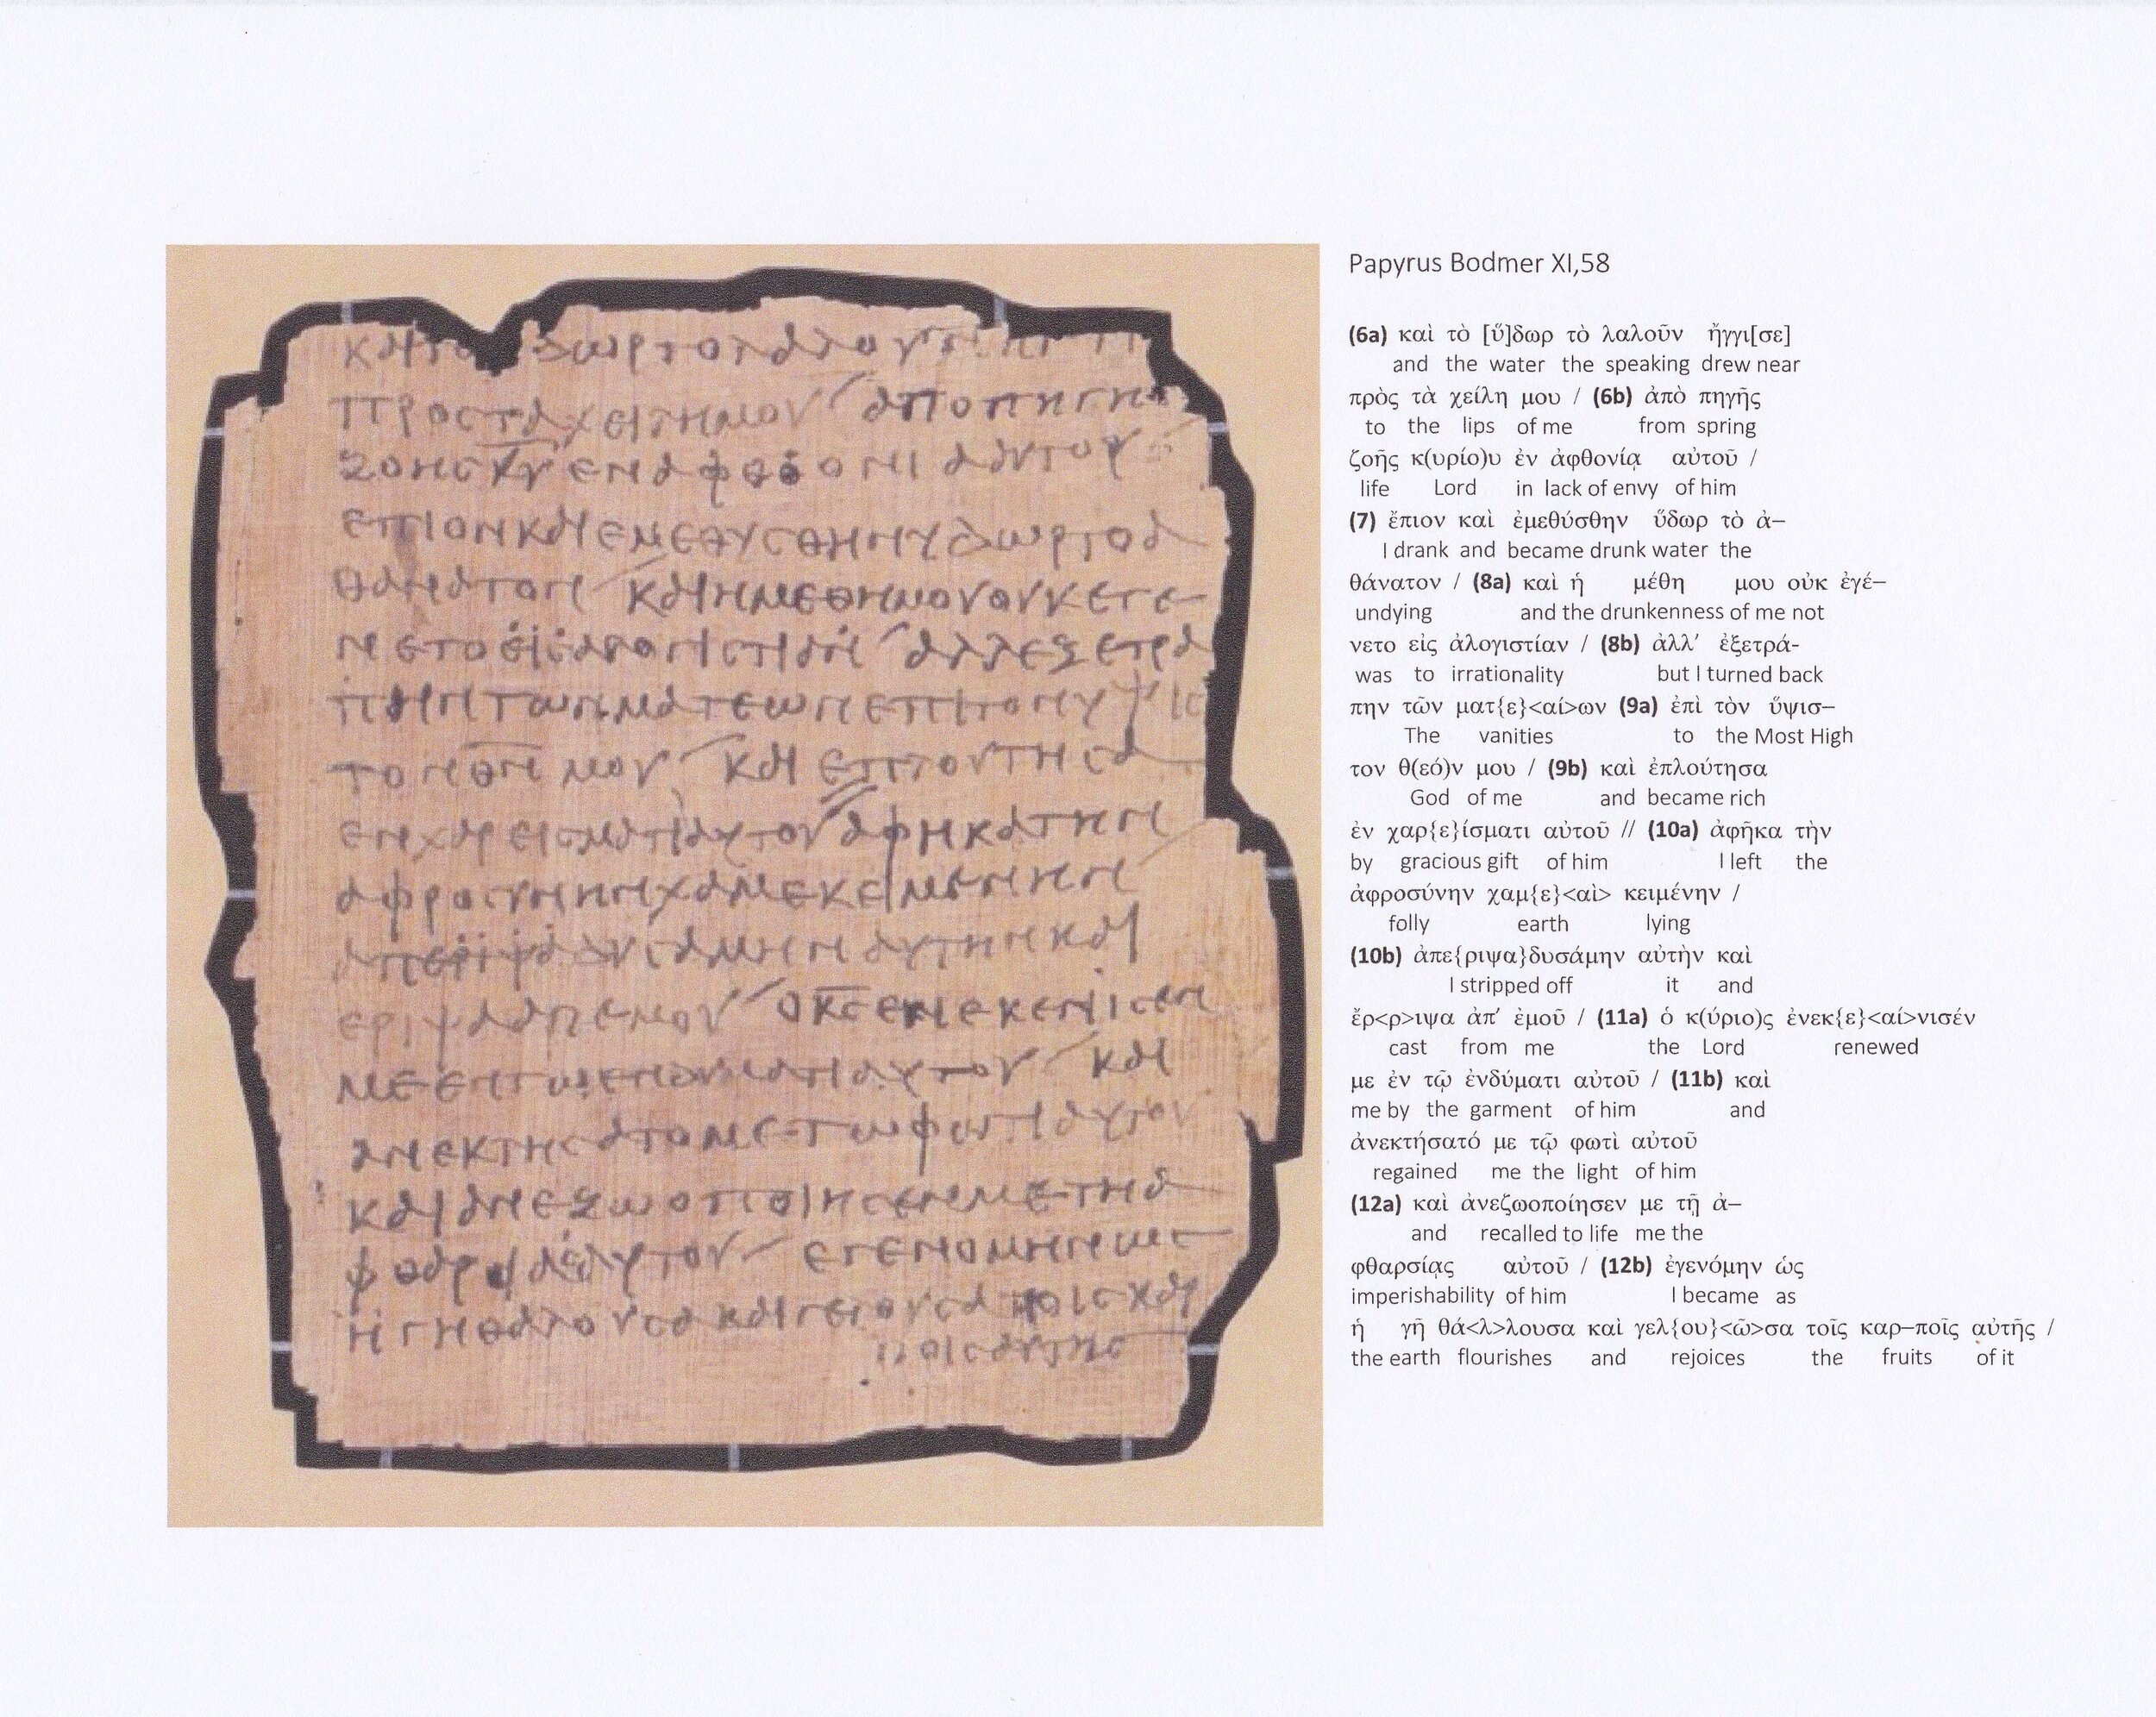 ΚΑΙΤΟ ΔΩΡΤΟΛΑΛΟΥΝ
ΠΡΟϹΤΑΧΕΙΛΗΜΟΥ / ΑΠΟΠΗΓΗϹ
ΖΟΗϹΚ̅Υ̅ΕΝΑΦΘΟΝΙΑΑΥΤΟΥ /
ΕΠΙΟΝΚΑΙΕΜΕΘΥϹΘΗΝΥΔΩΡΤΟΑ
ΘΑΝΑΤΟΝ / ΚΑΙΗΜΕΘΗΜΟΥΟΥΚΕΓΕ
ΝΕΤΟΕΙϹΑΛΟΓΙϹΤΙΑΝ / ΑΛΛΕΞΕΤΡΑ
ΠΗΝΤΩΝΜΑΤΕΩΝΕΠΙΤΟΝΥΨΙϹ
ΤΟΝΘ̅Ν̅ΜΟΥ / ΚΑΙΕΠΛΟΥΤΗϹΑ
ΕΝΧΑΡΕΙϹΜΑΤΙΑΥΤΟΥ // ΑΦΗΚΑΤΗΝ
ΑΦΡΟϹΥΝΗΝΧΑΜΕΚΕΙΜΕΝΗΝ /
ΑΠΕΡΙΨΑΔΥϹΑΜΗΝΑΥΤΗΝΚΑΙ
ΕΡΙΨΑΑΠΕΜΟΥ / ΟΚ̅Ϲ̅ΕΝΕΚΕΝΙϹΕΝ
ΜΕΕΝΤΩΕΝΔΥΜΑΤΙΑΥΤΟΥ / ΚΑΙ
ΑΝΕΚΤΗϹΑΤΟΜΕΤΩΦΩΤΙΑΥΤΟΥ
ΚΑΙΑΝΕΖΩΟΠΟΙΗϹΕΝΜΕΤΗΑ
ΑΥΤΟΥ / ΕΓΕΝΟΜΗΝΩϹ
ΗΓΗΘΑΛΟΥϹΑΚΑΙΓΕΛΟΥϹΑΤΟΙϹΚΑΡ
ΠΟΙϹΑΥΤΗϹ
Papyrus Bodmer XI,58
(6a) καὶ τὸ [ὕ]δωρ τὸ λαλοῦν ἤγγι[σε]
and the water the speaking drew near
πρὸς τὰ χείλη μου / (6b) ἀπὸ πηγῆς
to the lips of me from spring
ζοῆς κ(υρίο)υ ἐν ἀφθονίᾳ αὐτοῦ /
life Lord in lack of envy of him
(7) ἔπιον καὶ ἐμεθύσθην ὕδωρ τὸ ἀ–
I drank and became drunk water the
θάνατον / (8a) καὶ ἡ μέθη μου οὐκ ἐγέ–
undying and the drunkenness of me not
νετο εἰς ἀλογιστίαν / (8b) ἀλλ’ ἐξετρά-
was to irrationality but I turned back
πην τῶν ματ{ε}<αί>ων (9a) ἐπὶ τὸν ὕψισ–
The vanities to the Most High
τον θ(εό)ν μου / (9b) καὶ ἐπλούτησα
God of me and became rich
ἐν χαρ{ε}ίσματι αὐτοῦ // (10a) ἀφῆκα τὴν
by gracious gift of him I left the
ἀφροσύνην χαμ{ε}<αὶ> κειμένην /
folly earth lying
(10b) ἀπε{ριψα}δυσάμην αὐτὴν καὶ
I stripped off it and
ἔρ<ρ>ιψα ἀπ’ ἐμοῦ / (11a) ὁ κ(ύριο)ς ἐνεκ{ε}<αί>νισέν
cast from me the Lord renewed
με ἐν τῷ ἐνδύματι αὐτοῦ / (11b) καὶ
me by the garment of him and
ἀνεκτήσατό με τῷ φωτὶ αὐτοῦ
regained me the light of him
(12a) καὶ ἀνεζωοποίησεν με τῇ ἀ–
and recalled to life me the
φθαρσίᾳς αὐτοῦ / (12b) ἐγενόμην ὡς
imperishability of him I became as
ἡ γῆ θά<λ>λουσα καὶ γελ{ου}<ῶ>σα τοῖς καρ–ποῖς αὐτῆς /
the earth flourishes and rejoices the fruits of it